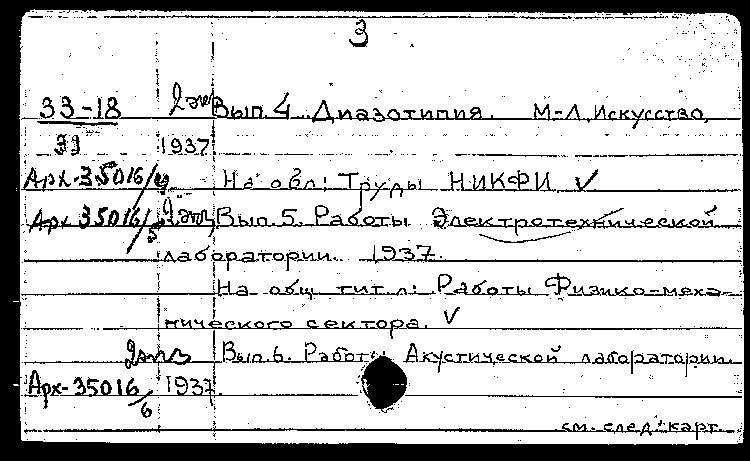 3
33-18 2 экз Вып. 4. Диазотипия. М-Л, Искусство,
1937
Арх-35016/4 На обл: Труды НИКФИ ✓
Арх 35016/5 2 экз, Вып. 5. Работы Электротехнической
лаборатории. 1937.
На общ. тит. л: Работы Физико-меха-
нического сектора. ✓
2 экз Вып. 6. Работы Акустической лаборатории.
Арх-35016/6 1937.
см. след. карт.